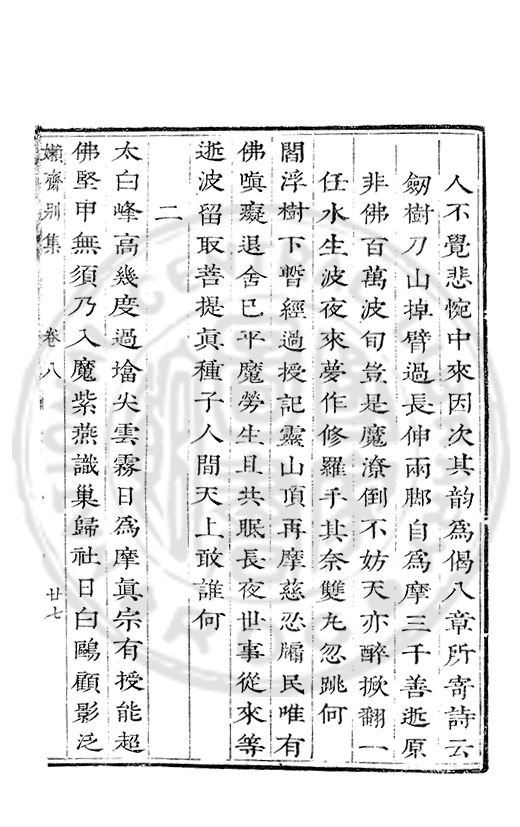 人不覺悲惋中來因次其韵爲偈八章所寄詩云
劒樹刀山掉臂過長伸兩脚自爲摩三千善逝原
非佛百萬波旬豈是魔潦倒不妨天亦醉掀翻一
任水生波夜來夢作修羅手其奈雙丸忽跳何
閻浮樹下暫經過授記靈山頂再摩慈忍牖民唯有
佛嗔癡退舍已平魔勞生且共眠長夜世事從來等
逝波留取菩提眞種子人間天上敢誰何
二
太白峰高幾度過墖尖雲霧日爲摩眞宗有授能超
佛堅甲無須乃入魔紫燕識巢歸社日白鷗顧影泛
嬾齋别集 卷八 廿七